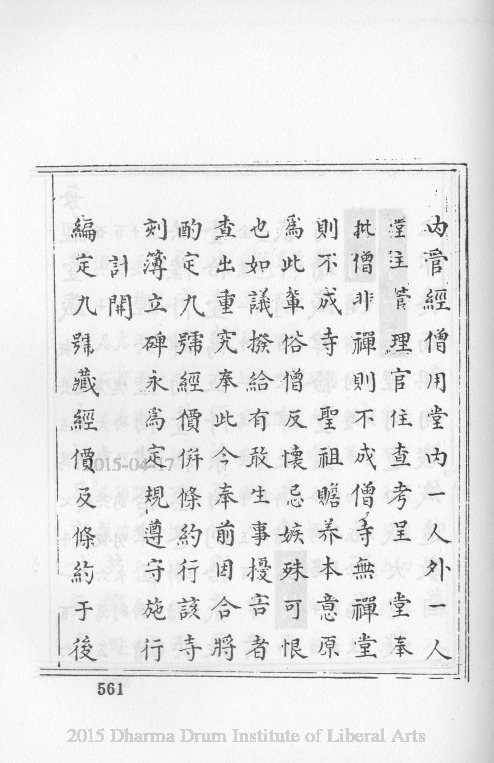 內管經僧用堂內一人外一人
堂住管理官住查考呈　堂奉
批僧非禪則不成僧寺無禪堂
則不成寺聖祖贍养本意原
爲此輩俗僧反懷忌嫉殊可恨
也如議撥給有敢生事擾害者
查出重究奉此今奉前因合將
酌定九號經價併條約行該寺
刻簿立碑永爲定規遵守施行
計開
編定九號藏經價及條約于後
561
2015-04-17
2015 Dharma Drum Institute of Liberal Arts